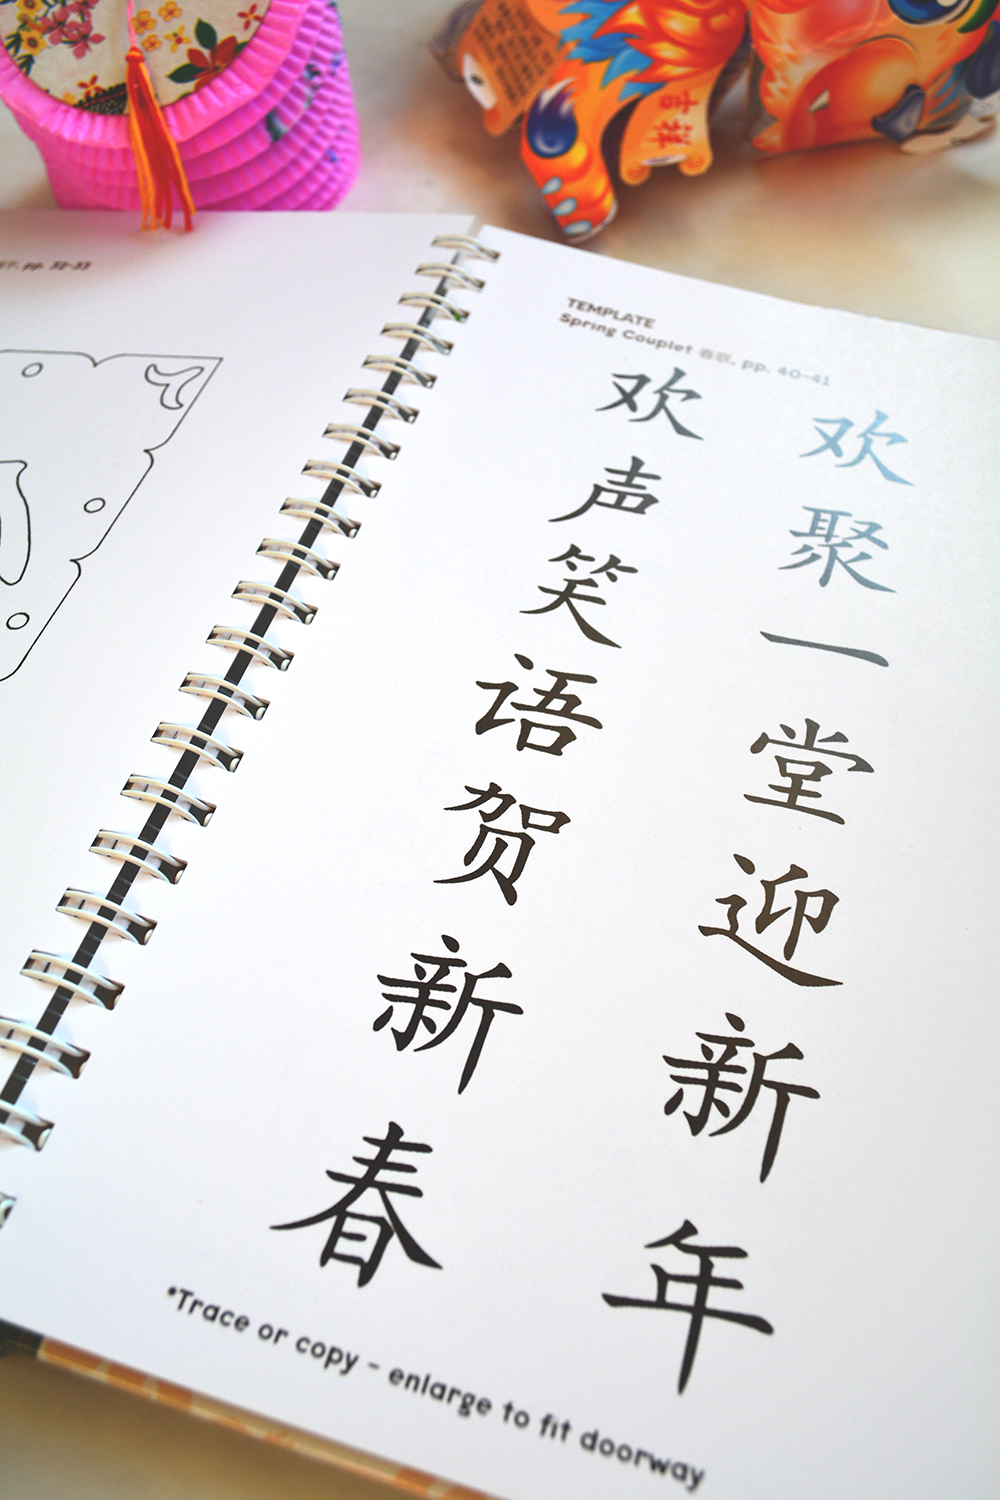 吉祥
pp. 32-33
TEMPLATE
Spring Couplet 春联, pp. 40-41
欢聚一堂迎新年
欢声笑语贺新春
*Trace or copy - enlarge to fit doorway